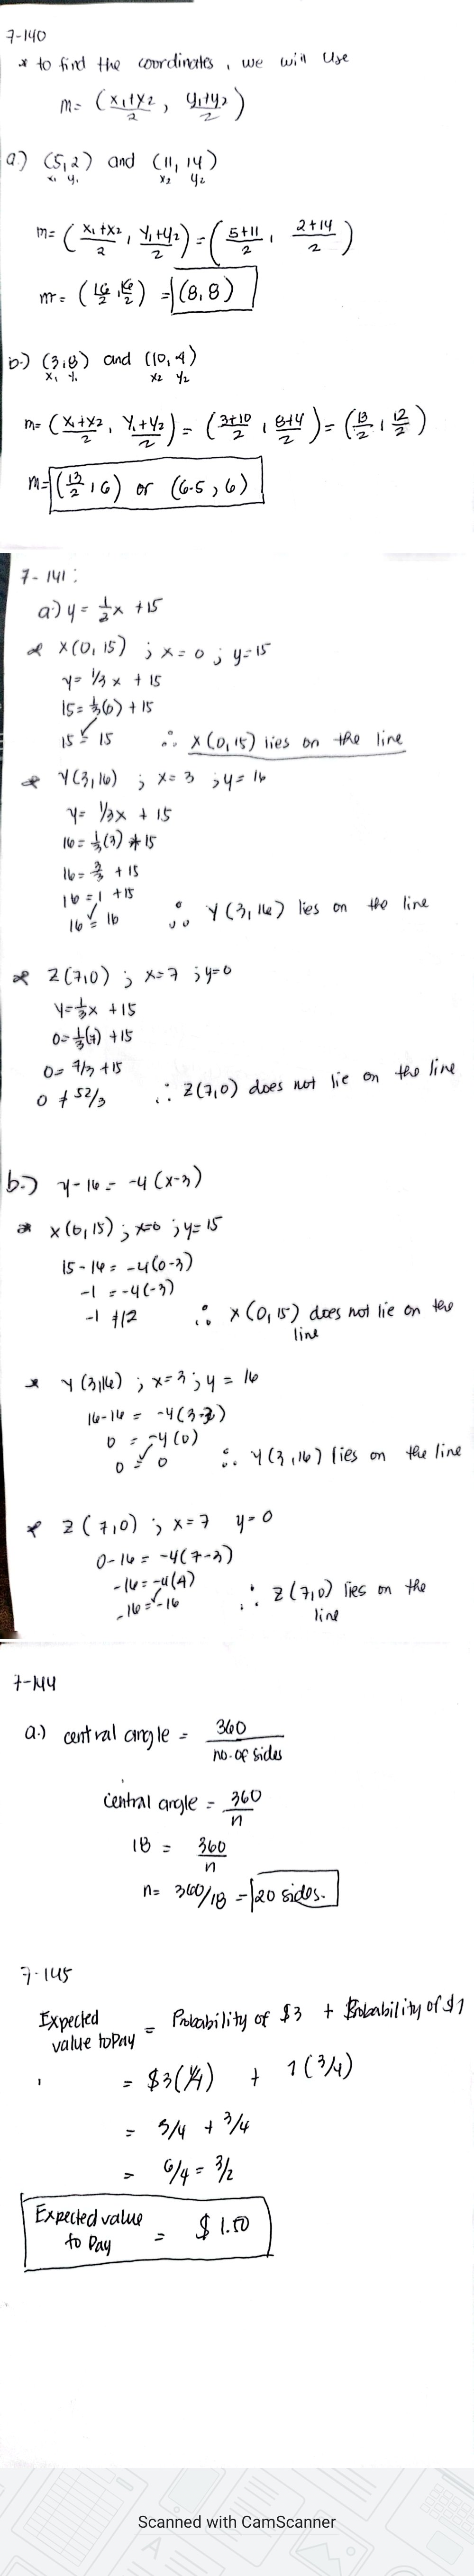 7-140
* to find the coordinates, we will use
m = (x₁+x₂/2, y₁+y₂/2)
a.) (5,2) and (11,14)
x₁ y₁ x₂ y₂
m = (x₁+x₂/2, y₁+y₂/2) = (5+11/2, 2+14/2)
m = (16/2, 16/2) = (8,8)
b.) (3,8) and (10,4)
x₁ y₁ x₂ y₂
m = (x₁+x₂/2, y₁+y₂/2) = (3+10/2, 8+4/2) = (13/2, 12/2)
m = (13/2, 6) or (6.5, 6)
7-141:
a.) y = 1/3 x + 15
* X(0,15) ; x = 0 ; y = 15
y = 1/3 x + 15
15 = 1/3(0) + 15
15 = 15 ∴ X(0,15) lies on the line
* Y(3,16) ; x = 3 ; y = 16
y = 1/3x + 15
16 = 1/3(3) + 15
16 = 3/3 + 15
16 = 1 + 15
16 = 16 ∴ Y(3,16) lies on the line
* Z(7,0) ; x = 7 ; y = 0
y = 1/3x + 15
0 = 1/3(7) + 15
0 = 7/3 + 15
0 ≠ 52/3 ∴ Z(7,0) does not lie on the line
b.) y-16 = -4(x-3)
* X(0,15) ; x=0 ; y=15
15-16 = -4(0-3)
-1 = -4(-3)
-1 ≠ 12 ∴ X(0,15) does not lie on the
line
* Y(3,16) ; x = 3 ; y = 16
16-16 = -4(3-3)
0 = -4(0)
0 = 0 ∴ Y(3,16) lies on the line
* Z(7,0) ; x = 7 y = 0
0-16 = -4(7-3)
-16 = -4(4)
-16 = -16 ∴ Z(7,0) lies on the
line
7-144
a.) central angle = 360/no. of sides
central angle = 360/n
18 = 360/n
n = 360/18 = 20 sides.
7-145
Expected
value to Pay = Probability of $3 + Probability of $1
= $3(1/4) + 1(3/4)
= 3/4 + 3/4
= 6/4 = 3/2
Expected value
to Pay = $1.50
Scanned with CamScanner